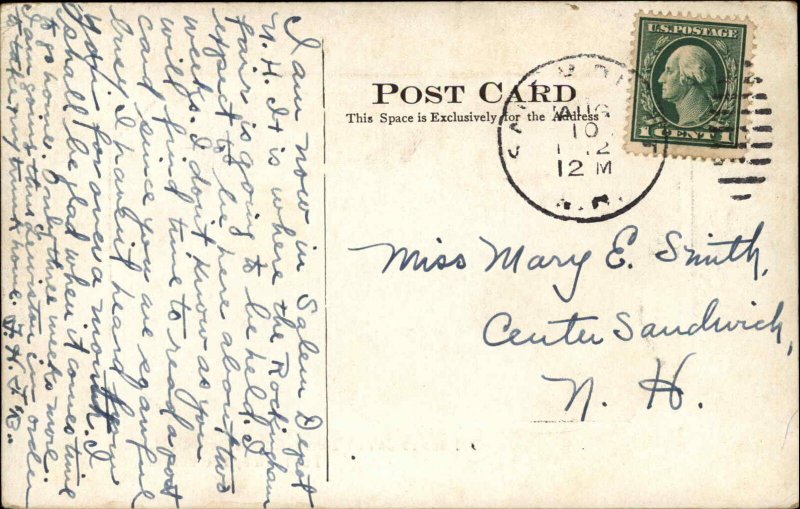 I am now in Salem Depot
N. H. It is where the Rockingham
fair is going to be held. I
expect to be here about two
weeks. I don't know as you
will find time to read a post
card since you are so awful
busy. I haven't heard from
you for over a month. I
shall be glad when it comes time
to go home. Only three weeks more.
I am going thru Lewiston in order
to take my trunk home.
POST CARD
This Space is Exclusively for the Address
AUG
10
12 M
U.S. POSTAGE
1 CENT 1
Miss Mary E. Smith,
Center Sandwich,
N. H.